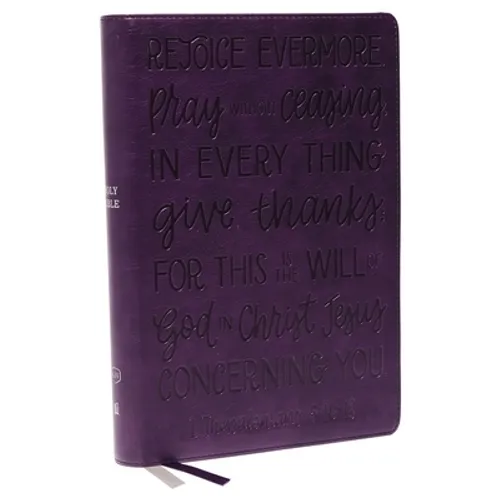 REJOICE EVERMORE.
Pray WITHOUT ceasing.
IN EVERY THING
give thanks:
FOR THIS IS THE WILL OF
God IN Christ Jesus
CONCERNING YOU
1 THESSALONIANS
HOLY
BIBLE
KJV